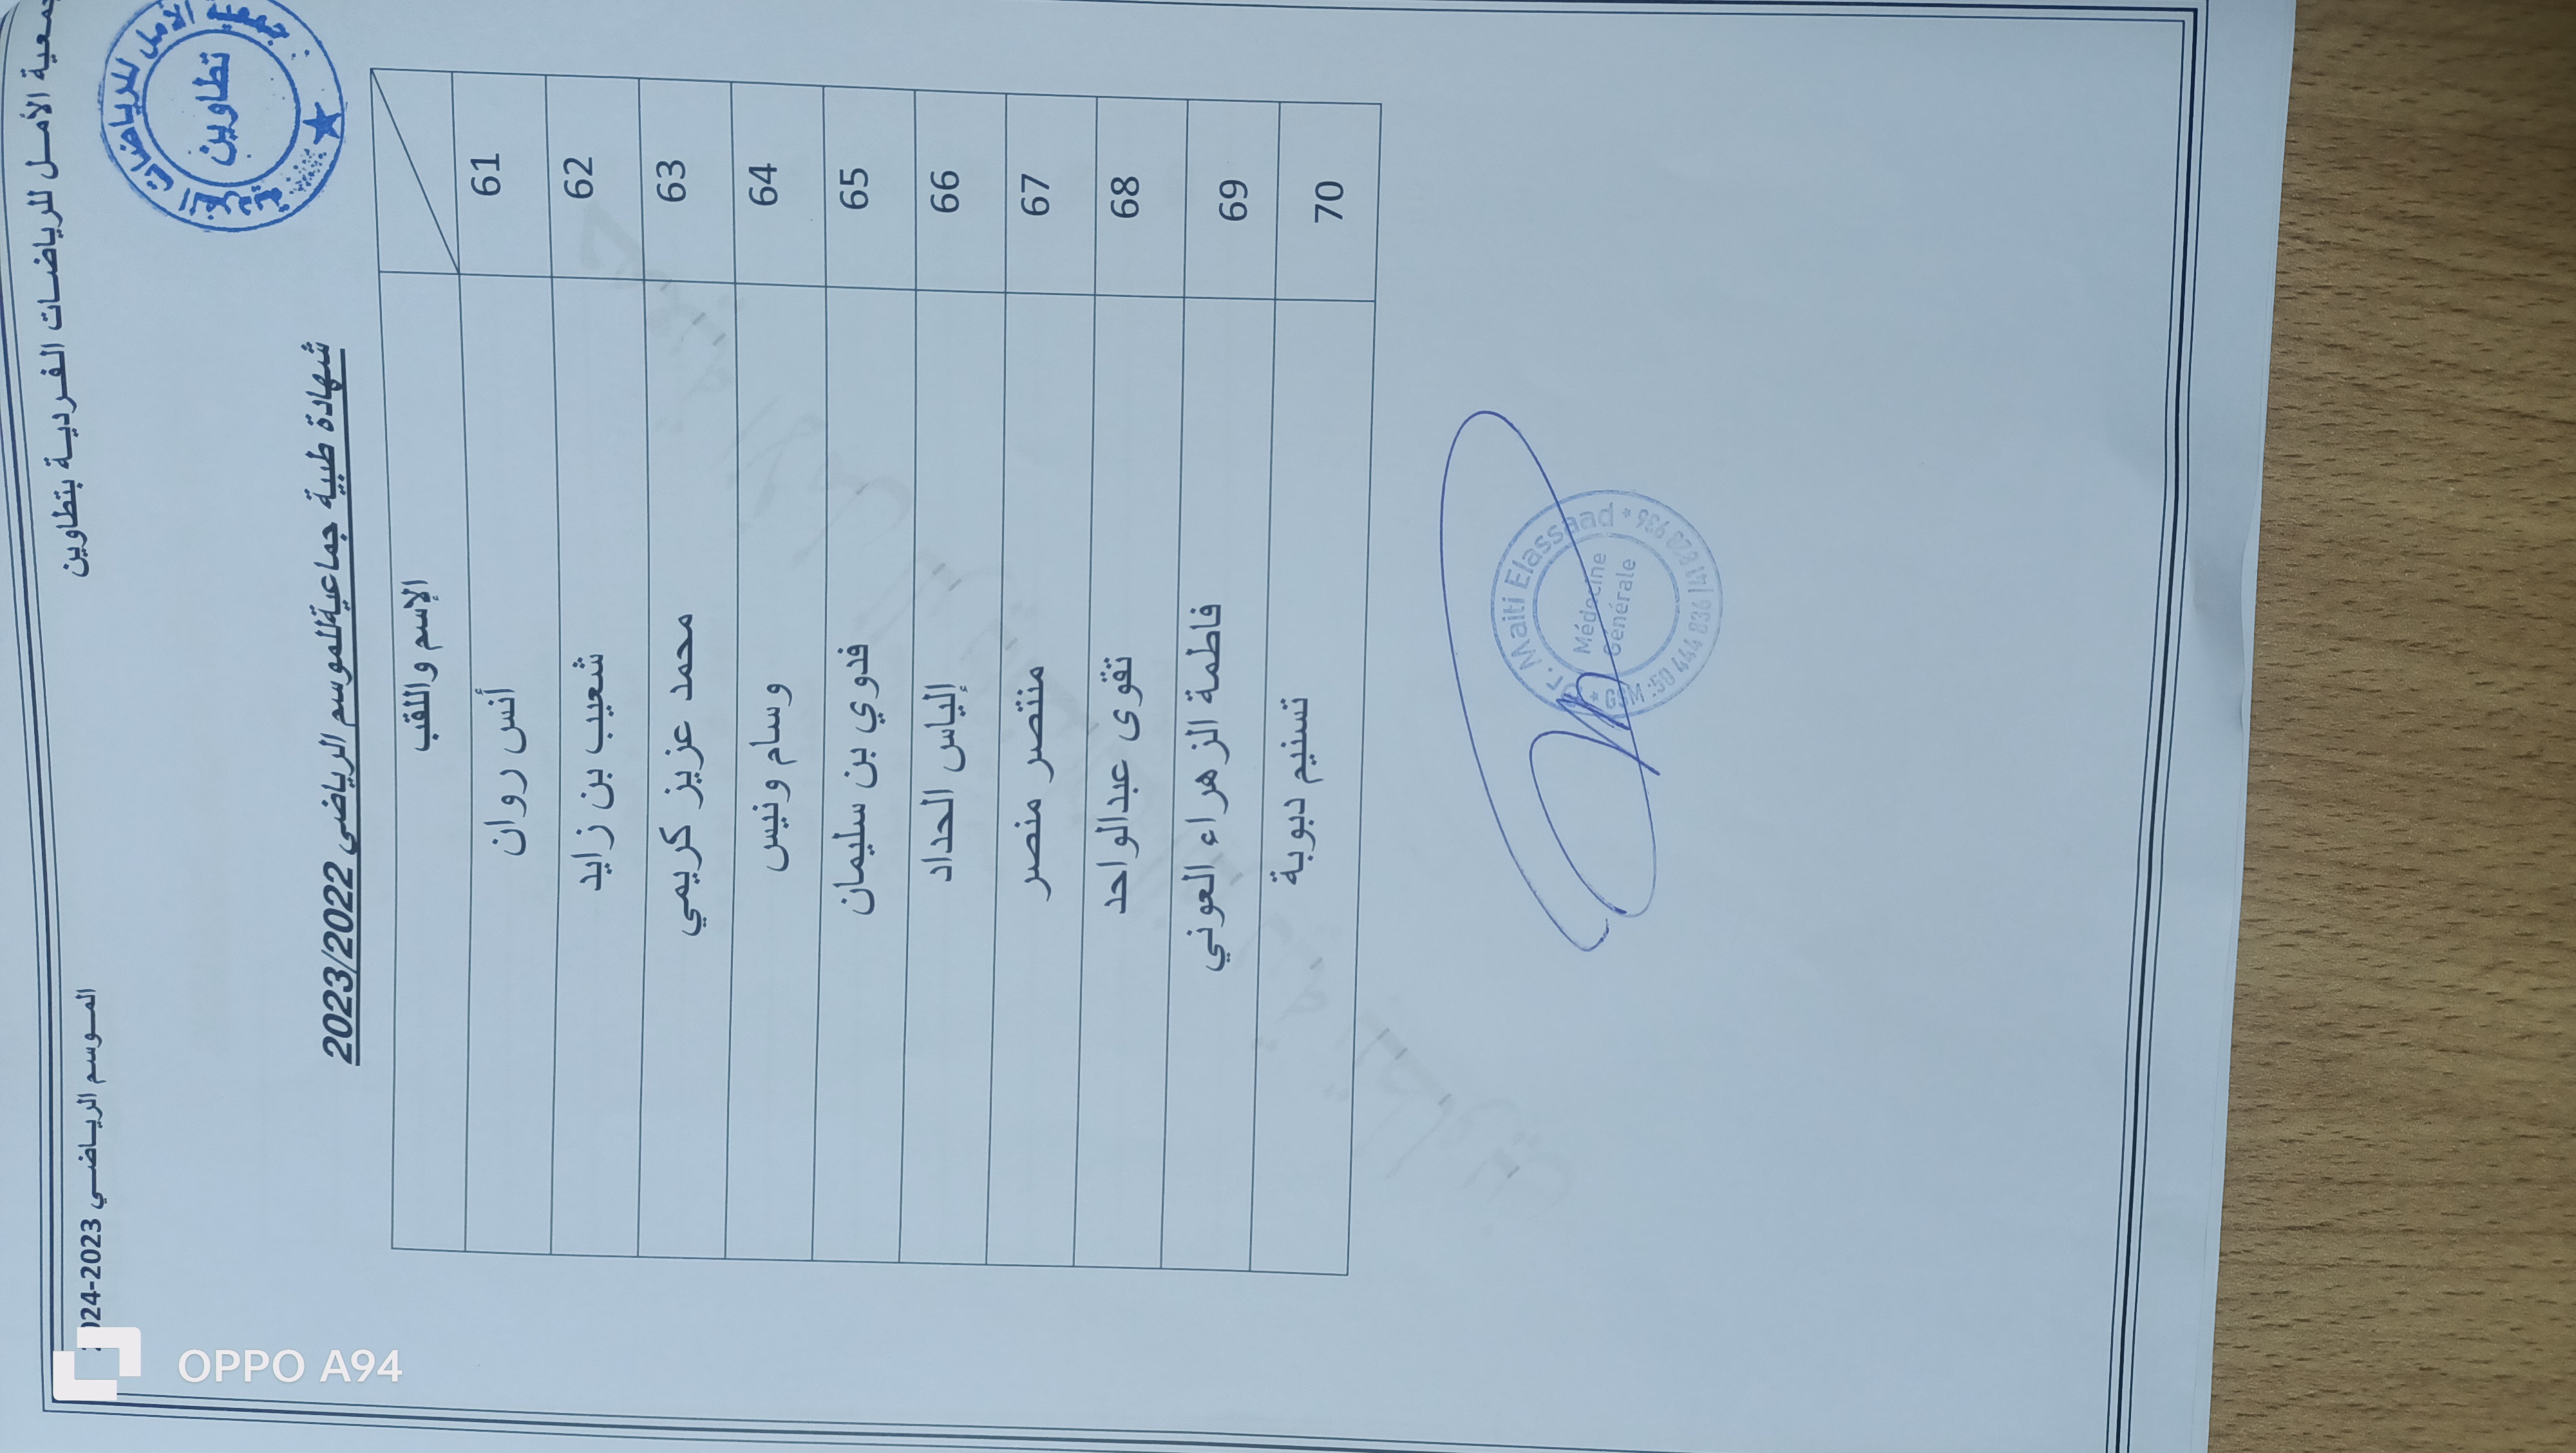 جمعية الأمل للرياضات الفردية بتطاوين
الموسم الرياضي 2023-2024
تطاوين
شهادة طبية جماعية للموسم الرياضي 2023/2022
الإسم واللقب
61 أنس روان
62 شعيب بن زايد
63 محمد عزيز كريمي
64 وسام ونيس
65 فدوي بن سليمان
66 إلياس الحداد
67 منتصر منصر
68 تقوى عبدالواحد
69 فاطمة الزهراء العوني
70 تسنيم دبوبة
Dr. Maiti Elassaad
Médecine
Générale
* GSM :50 444 836 | 71 828 936 *
OPPO A94